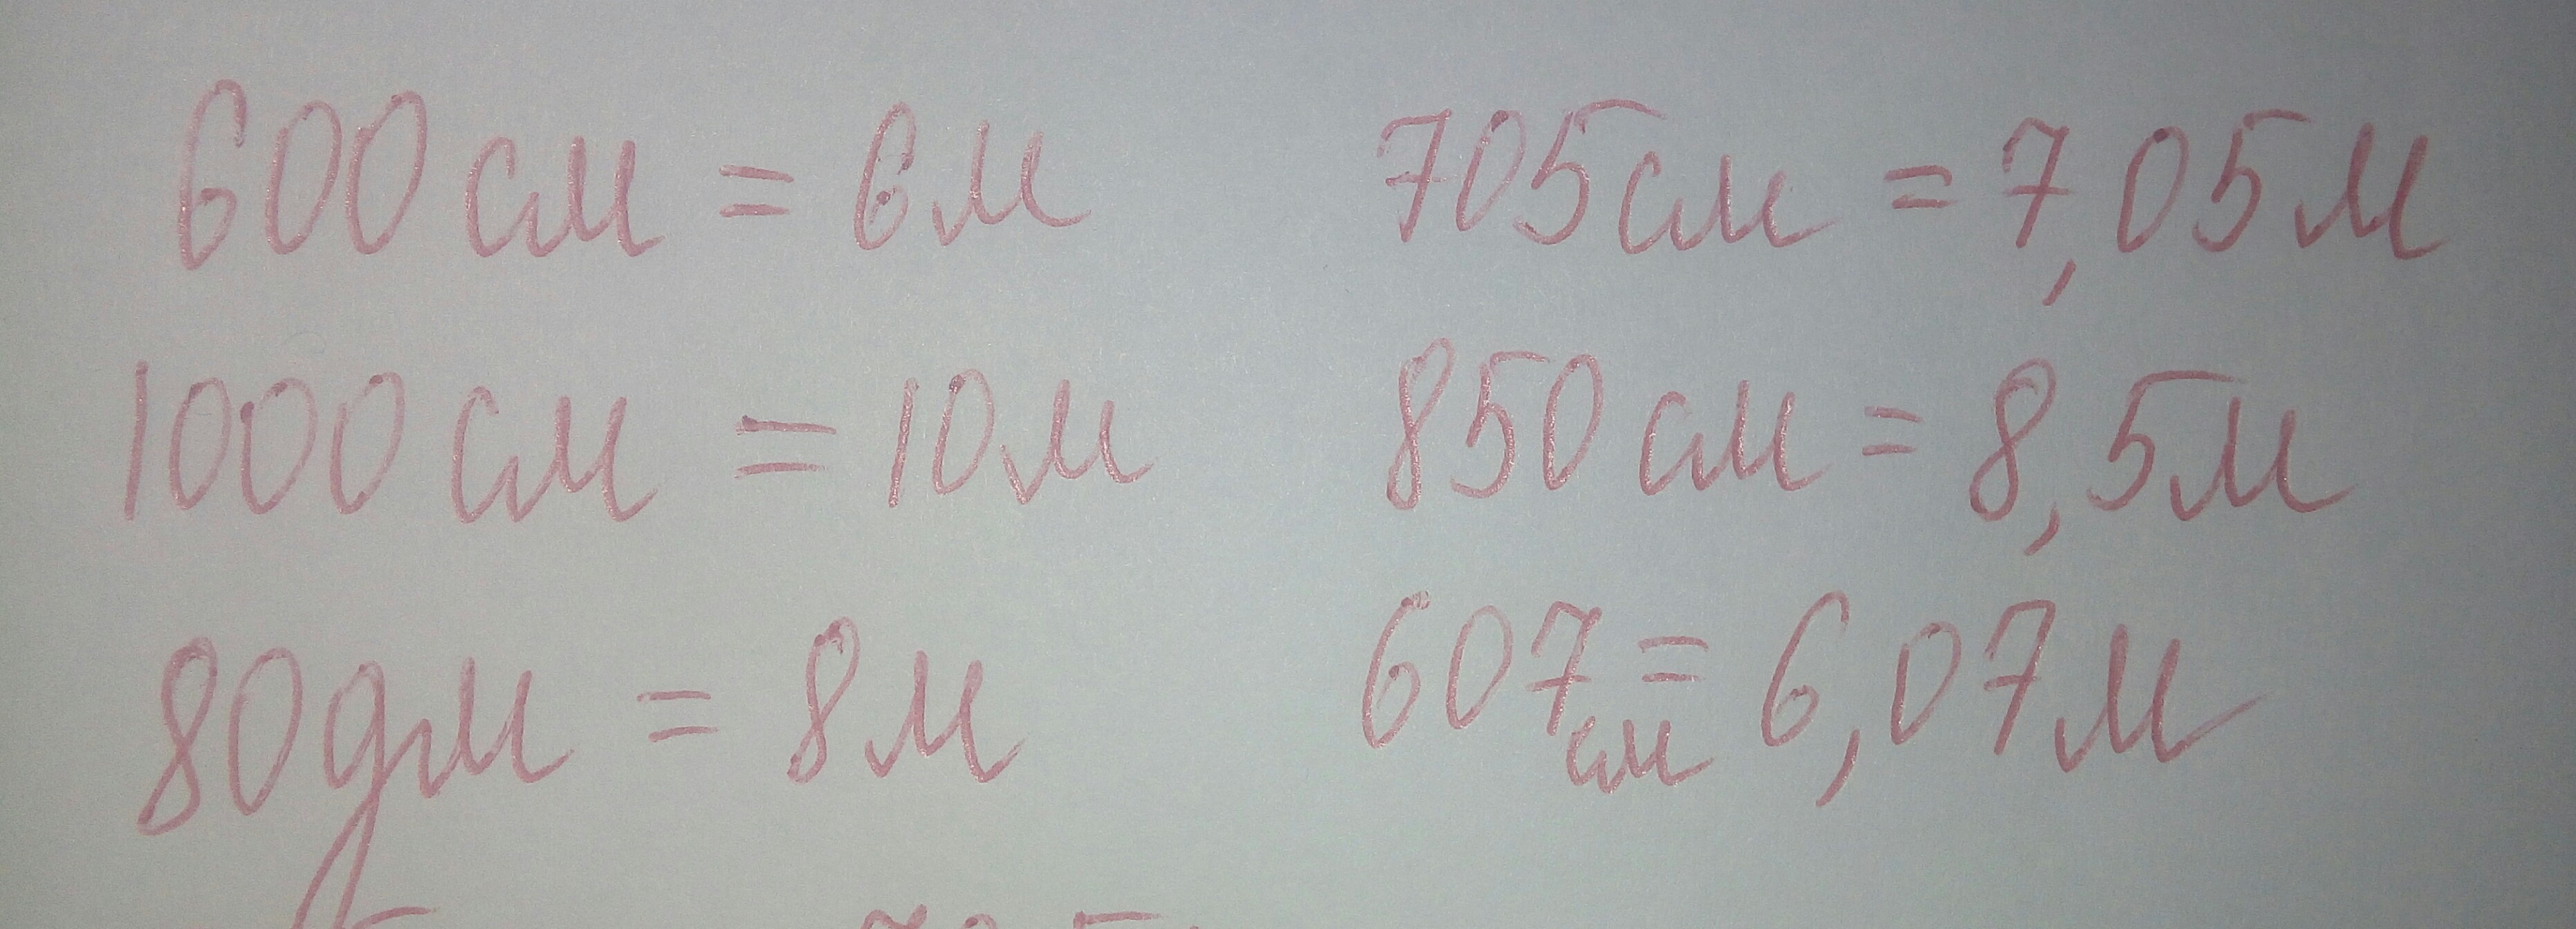 600 см = 6 м 705 см = 7,05 м
1000 см = 10 м 850 см = 8,5 м
80 дм = 8 м 607 см = 6,07 м